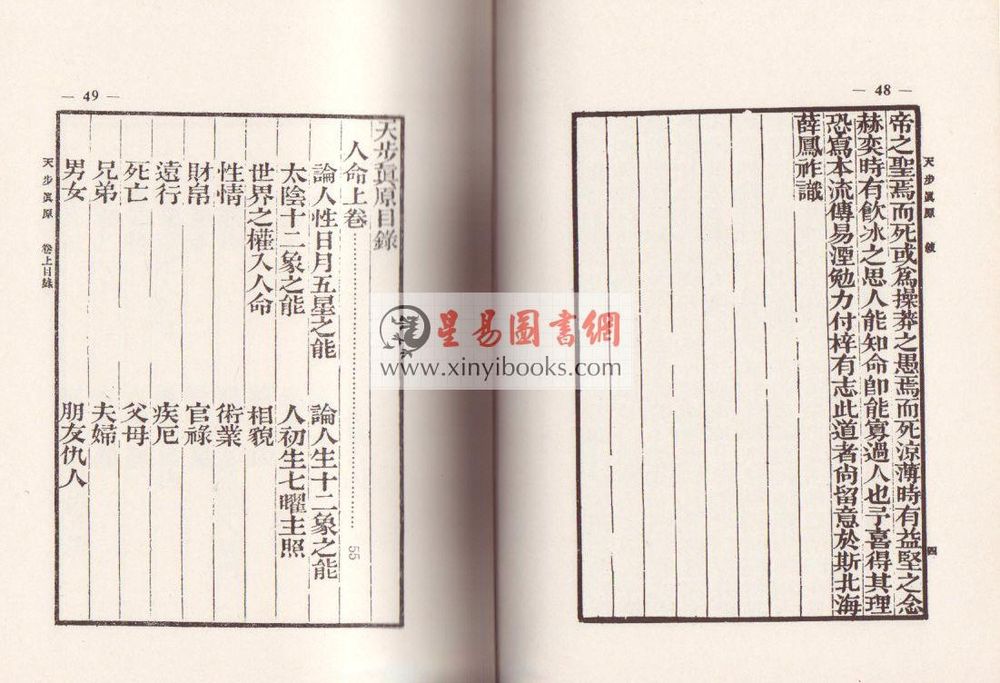 — 48 —
天步眞原 敍
四
帝之聖焉而死或爲操莽之愚焉而死涼薄時有益堅之念
赫奕時有飮冰之思人能知命卽能寡過人也予喜得其理
恐寫本流傳易湮勉力付梓有志此道者尙留意於斯北海
薛鳳祚識
— 49 —
天步眞原目錄
人命上卷……………………55
論人性日月五星之能 論人生十二象之能
太陰十二象之能 人初生七曜主照
世界之權入人命 相貌
性情 術業
財帛 官祿
遠行 疾厄
死亡 父母
兄弟 夫婦
男女 朋友仇人
天步眞原 卷上目錄
星易圖書網
www.xinyibooks.com